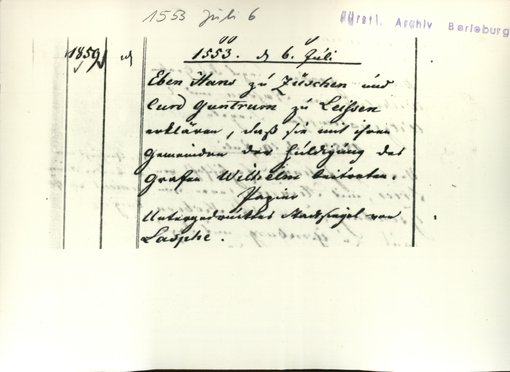 1553 Juli 6
Fürstl. Archiv Berleburg
1859
1553. d 6. Juli
Eben Hans zu Züschen und
Curd Guntrum zu Leissen
erklären, daß sie mit ihren
Gemeinden der Huldigung des
Grafen Wilhelm beitreten.
Papier
Untergedrucktes Stadtsiegel von
Laasphe.